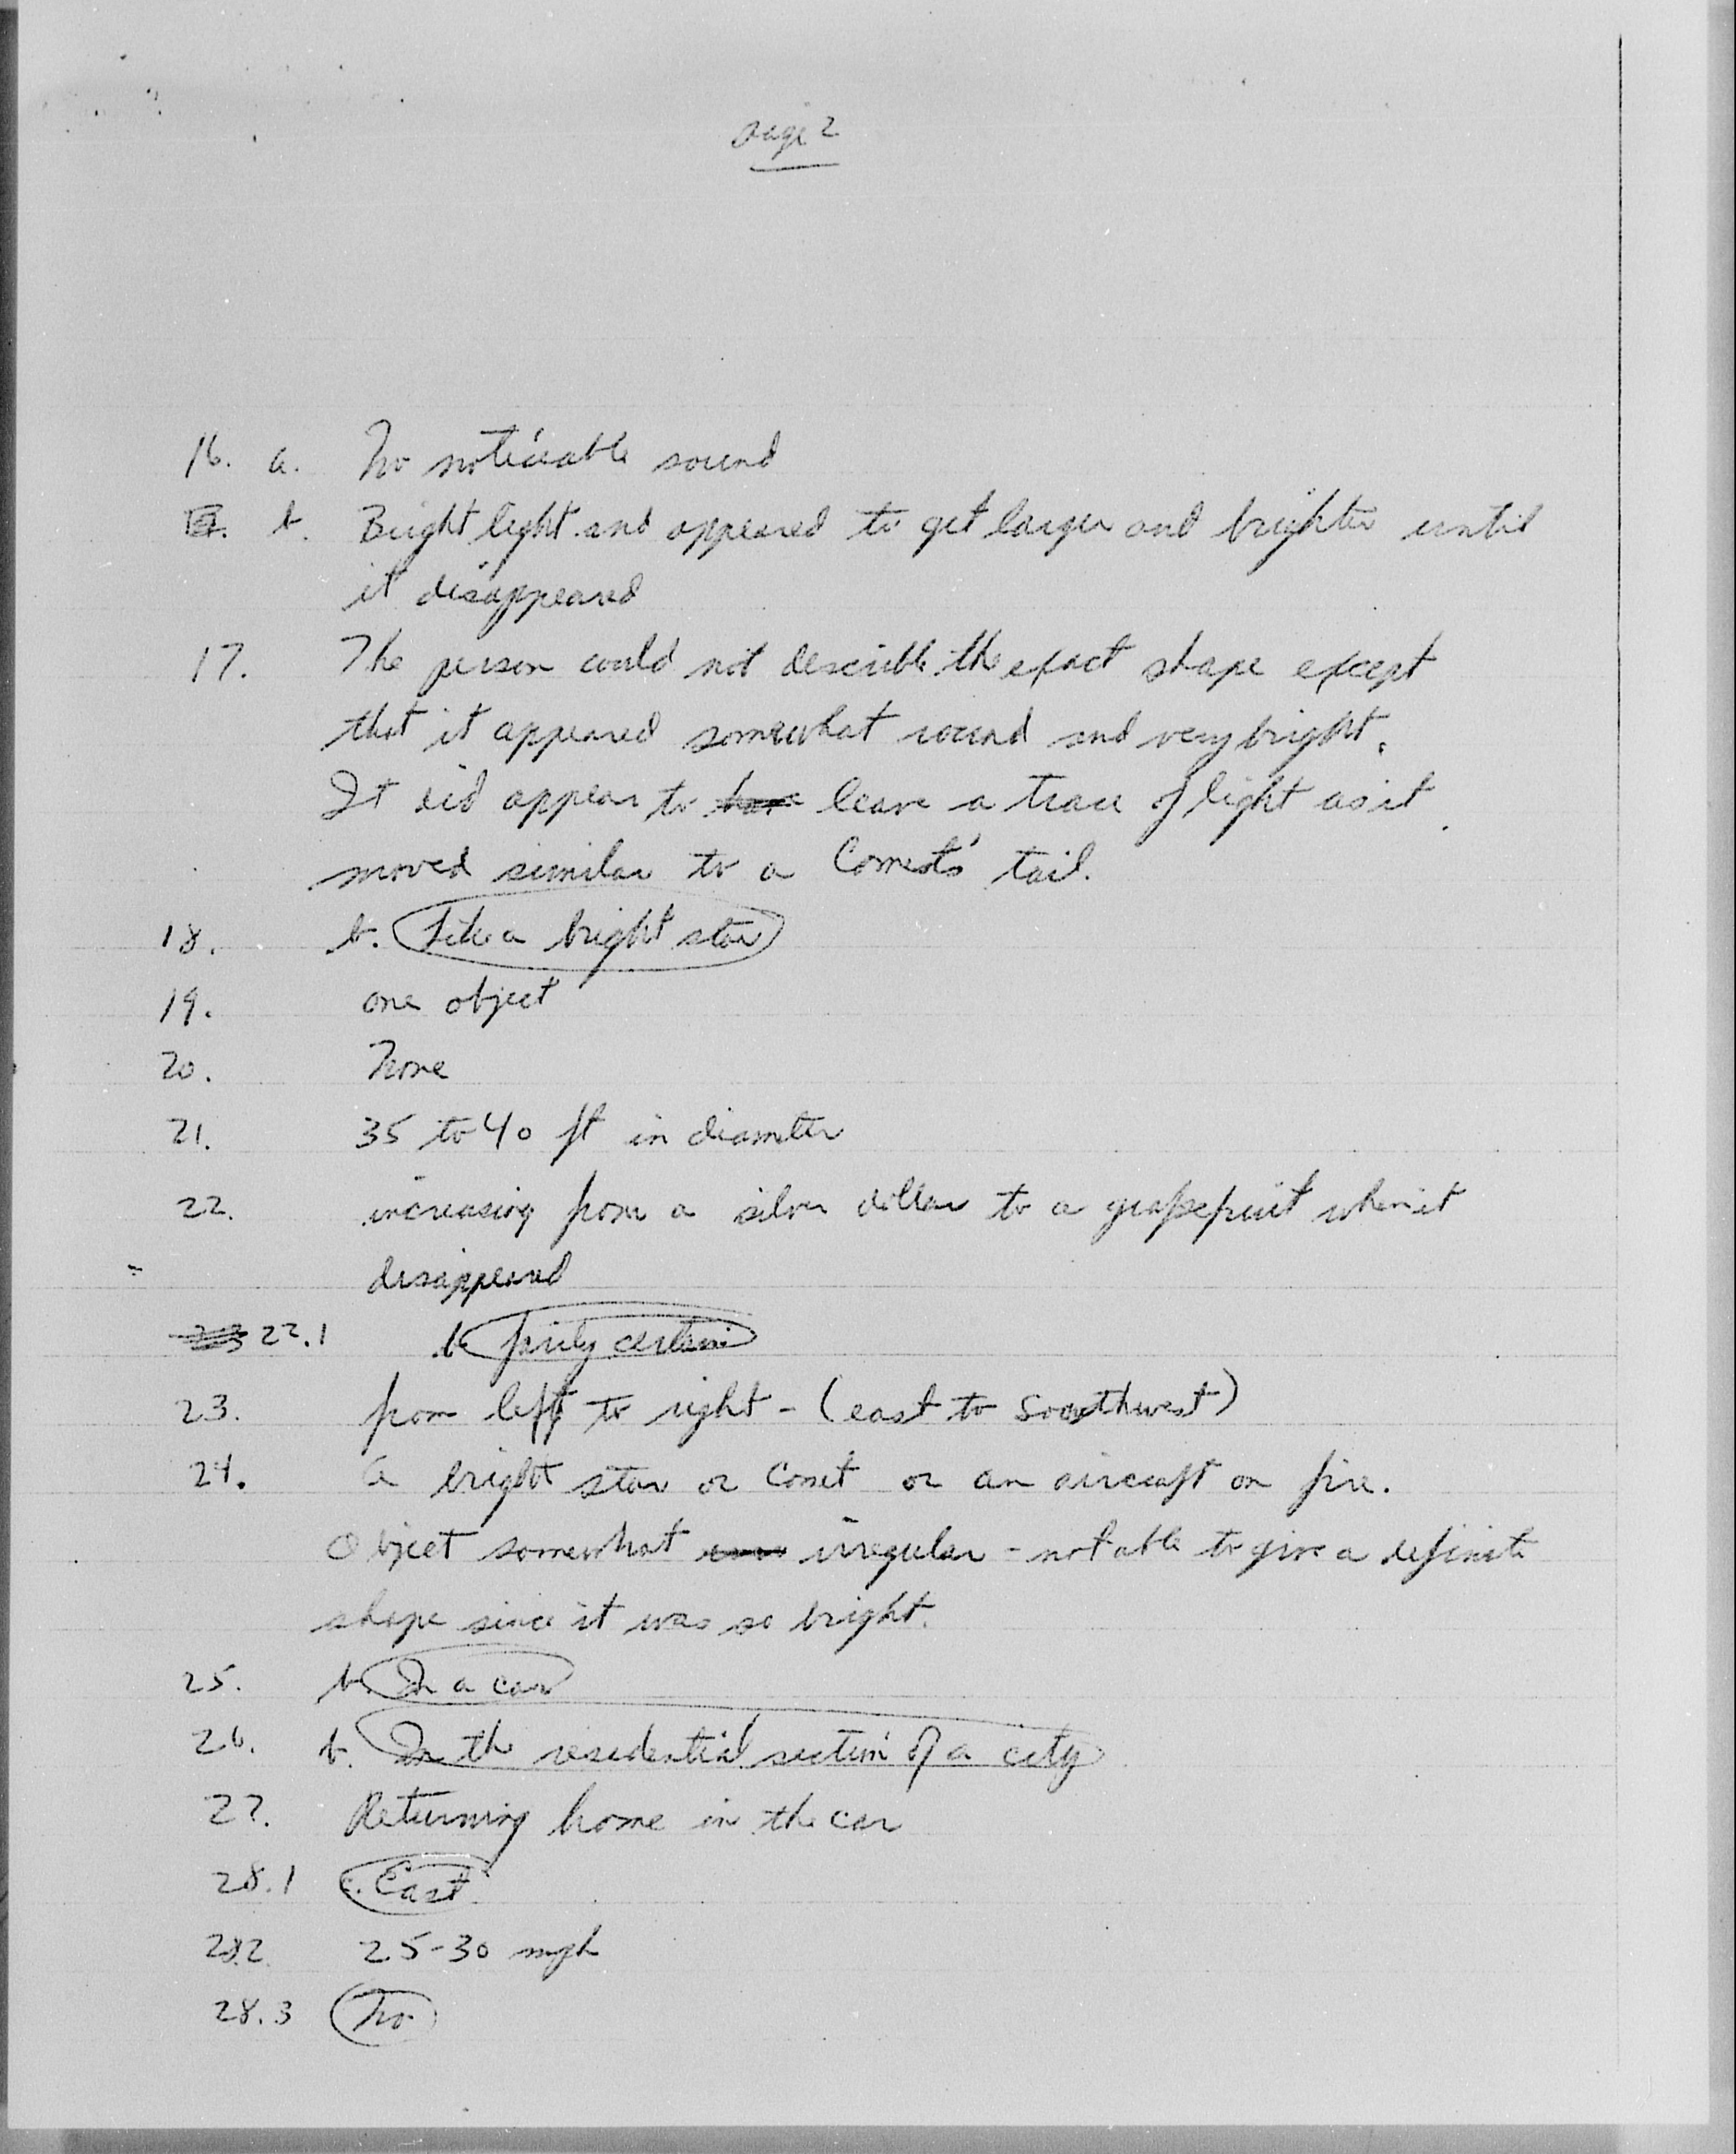 Page 2
16. a. No noticeable sound
b. Bright light and appeared to get larger and brighter until
it disappeared
17. The person could not describle the exact shape except
that it appeared somewhat round and very bright.
It did appear to have leave a trace of light as it
moved similar to a Comets' tail.
18. b. Like a bright star
19. one object
20. None
21. 35 to 40 ft in diameter
22. increasing from a silver dollar to a grapefruit when it
disappeared
23 22.1 b. fairly certain
23. from left to right - (east to southwest)
24. A bright star or Comet or an aircraft on fire.
Object somewhat irregular - not able to give a definite
shape since it was so bright.
25. b. In a car
26. b. In the residential section of a city
27. Returning home in the car
28.1 c. East
28.2 25-30 mph
28.3 No